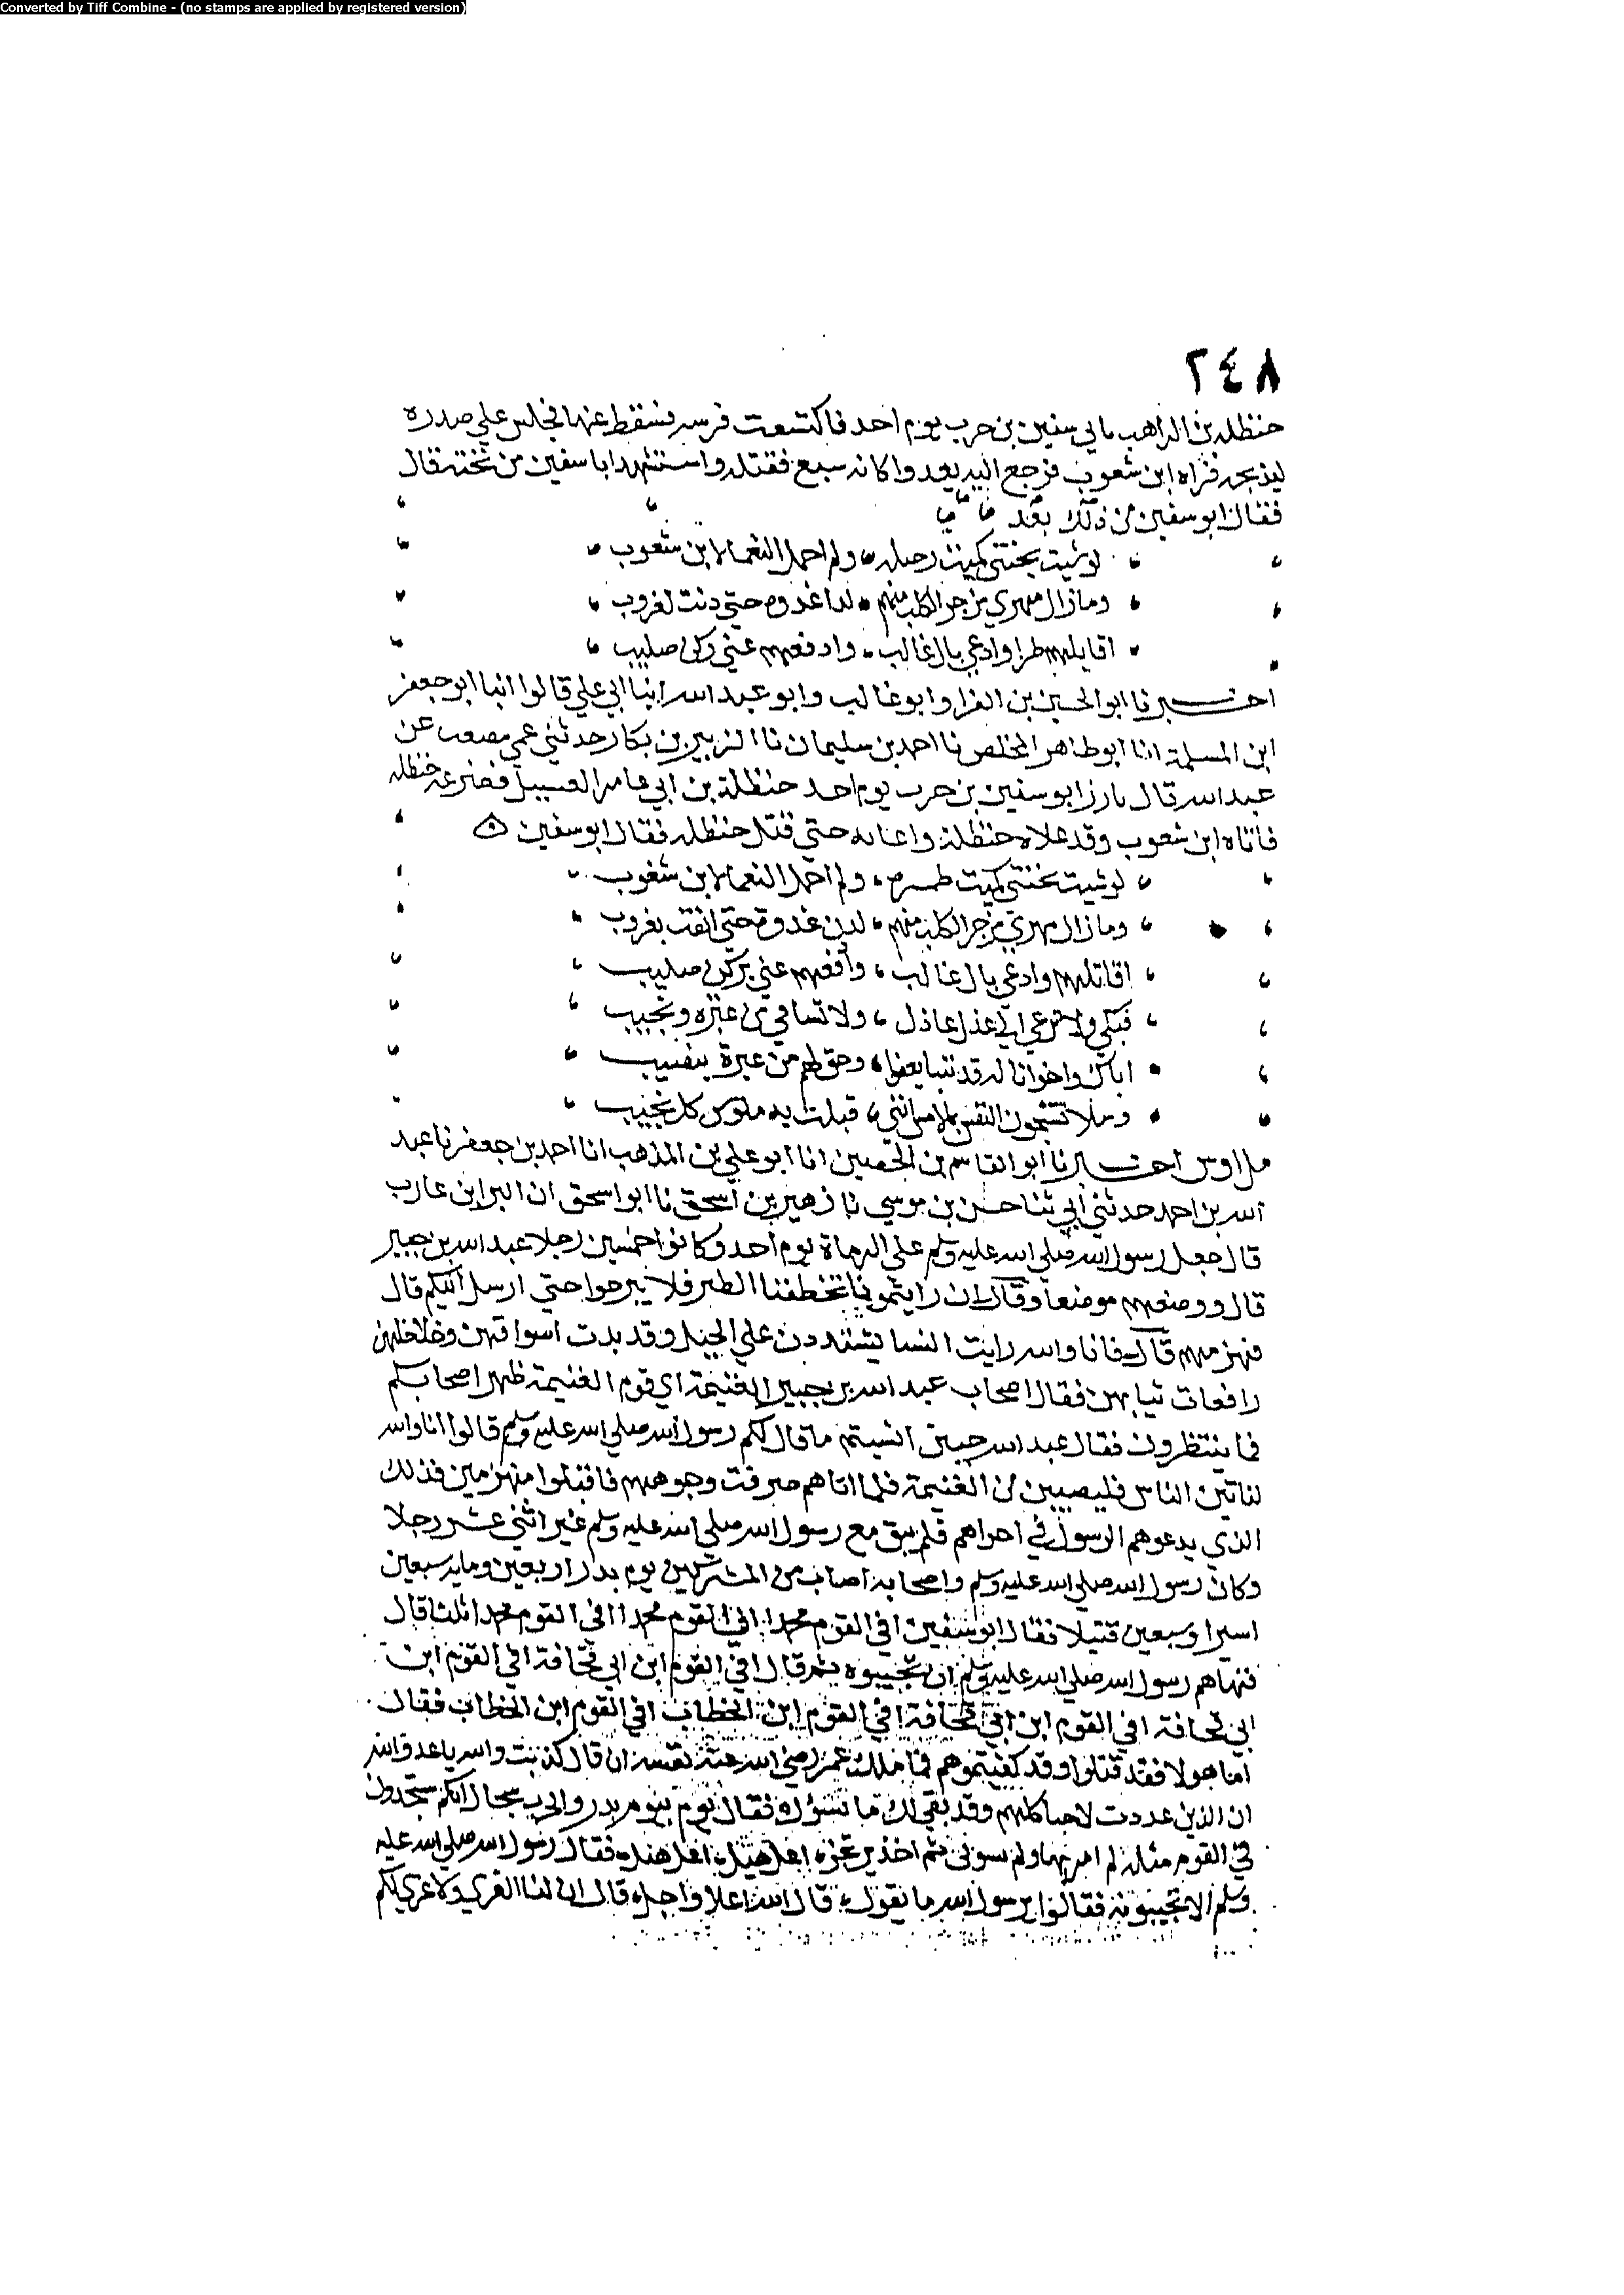 Converted by Tiff Combine - (no stamps are applied by registered version)
٢٤٨
حنظله بن الراهب بابي سفين بن حرب يوم احد فاكتسعت فرسه فسقط عنها فجلس علي صدره
ليذبحه فراه ابن شعوب فرجع اليه يعدوا كانه سبع فقتله واستنقد ابا سفين من تحته قال
فقال ابو سفين من ذلك بعد
لو شيت نجتني كميت رحيله ولم احمل النعما لابن شعوب
وما زال مهري مزجر الكلب منهم لدا غدوه حتي دنت لغروب
اقاتلهم طرا وادعي يال غالب وادفعهم عني بركن صليب
اخبرنا ابو الحسين بن الفرا وابو غالب وابو عبد الله ابنا ابي علي قالوا انبا ابو جعفر
ابن المسلمة انا ابو طاهر المخلص نا احمد بن سليمان نا الزبير بن بكار حدثني عمي مصعب عن
عبد الله قال بارز ابو سفين بن حرب يوم احد حنظلة بن ابي عامر الغسيل فصرعه حنظله
فاتاه ابن شعوب وقد علاه حنظلة واعانه حتي قتل حنظله فقال ابو سفين
لو شيت نجتني كميت طمره ولم احمل النعما لابن شعوب
وما زال مهري مزجر الكلب منهم لدن غدوة حتي اتقت بغروب
اقاتلهم وادعي يال غالب وادفعهم عني بركن صليب
فبكي ولا ترعي الي عذل عاذل ولا تسامي من عبرة ونحيب
اباك واخوانا له قد تتابعوا وحق لهم من عبرة بنصيب
وسلا شجون النفس بالامس انني قبلت به ملوس كل نجيب
ملاوس اخبرنا ابو القاسم بن الحصين انا ابو علي بن المذهب انا احمد بن جعفر نا عبد
الله بن احمد حدثني ابي ثنا حسن بن موسي نا زهير بن اسحق نا ابو اسحق ان البرا بن عازب
قال جعل رسول الله صلي الله عليه وسلم علي الرماة يوم احد وكانوا خمسين رجلا عبد الله بن جبير
قال ووضعهم موضعا وقال ان رايتمونا تخطفنا الطير فلا تبرحوا حتي ارسل اليكم قال
فهزمهم قال فانا والله رايت النسا يشتددن علي الجبل وقد بدت اسواقهن وخلاخلهن
رافعات ثيابهن فقال اصحاب عبد الله بن جبير الغنيمة اي قوم الغنيمة ظهر اصحابكم
فما ينتظرون فقال عبد الله جبير انسيتم ما قال لكم رسول الله صلي الله عليه وسلم قالوا انا والله
لناتين الناس فليصيبن من الغنيمة فلما اتاهم صرفت وجوههم فاقبلوا منهزمين فذلك
الذي يدعوهم الرسول في اخراهم فلم يبق مع رسول الله صلي الله عليه وسلم غير اثني عشر رجلا
وكان رسول الله صلي الله عليه وسلم واصحابه اصاب من المشركين يوم بدر اربعين ومايه سبعين
اسيرا وسبعين قتيلا فقال ابو سفين افي القوم محمد افي القوم محمد افي القوم محمد ثلثا قال
فنهاهم رسول الله صلي الله عليه وسلم ان تجيبوه ثم قال افي القوم ابن ابي قحافة افي القوم ابن
ابي قحافة افي القوم ابن ابي قحافة افي القوم ابن الخطاب افي القوم ابن الخطاب فقال
اما هولا فقد قتلوا وقد كفيتموهم فما ملك عمر رضي الله عنه نفسه ان قال كذبت والله يا عدو الله
ان الذين عددت لاحيا كلهم وقد بقي لك ما تسؤك فقال يوم بيوم بدر والحرب سجال انكم ستجدون
في القوم مثلة لم امر بها ولم تسوني ثم اخذ يرتجز اعل هبل اعل هبل فقال رسول الله صلي الله عليه
وسلم الا تجيبونه فقالوا يرسول الله ما نقول قال الله اعلا واجل قال ان لنا العزي ولا عزي لكم